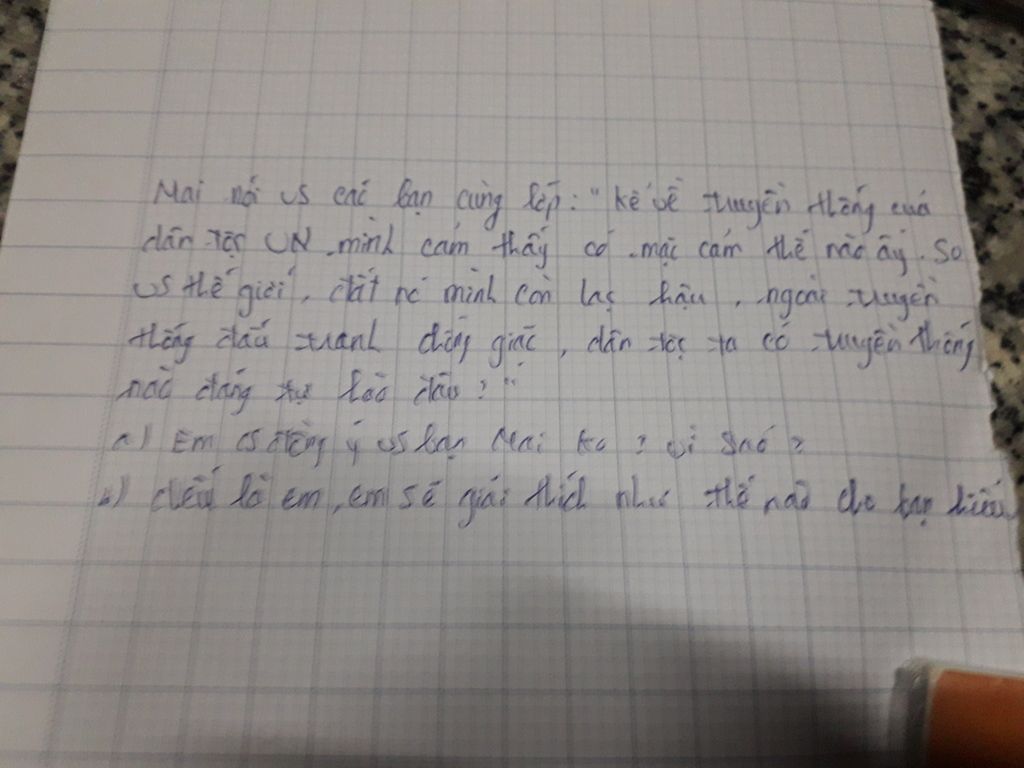 Mai nói vs các bạn cùng lớp: "Kể về truyền thống của
dân tộc VN mình cảm thấy có mặc cảm thế nào ấy. So
vs thế giới, đất nc mình còn lạc hậu, ngoài truyền
thống đấu tranh chống giặc, dân tộc ta có truyền thống
nào đáng tự hào đâu?"
a) Em có đồng ý vs bạn Mai ko? Vì sao?
b) Nếu là em, em sẽ giải thích như thế nào cho bạn hiểu